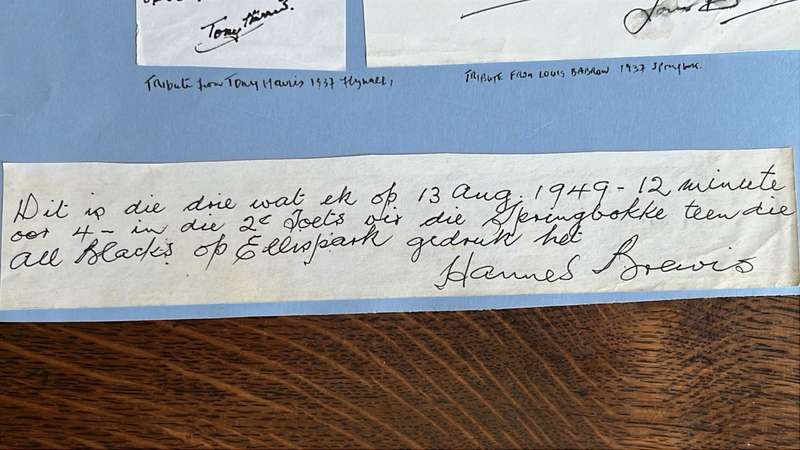 Tony Harris.
Louis B
Tribute from Tony Harris 1937 flyhalf,
TRIBUTE FROM LOUIS BABROW 1937 Springbok.
Dit is die drie wat ek op 13 Aug. 1949 - 12 minute
oor 4 - in die 2e Toets vir die Springbokke teen die
All Blacks op Ellispark gedruk het
Hannes Brewis